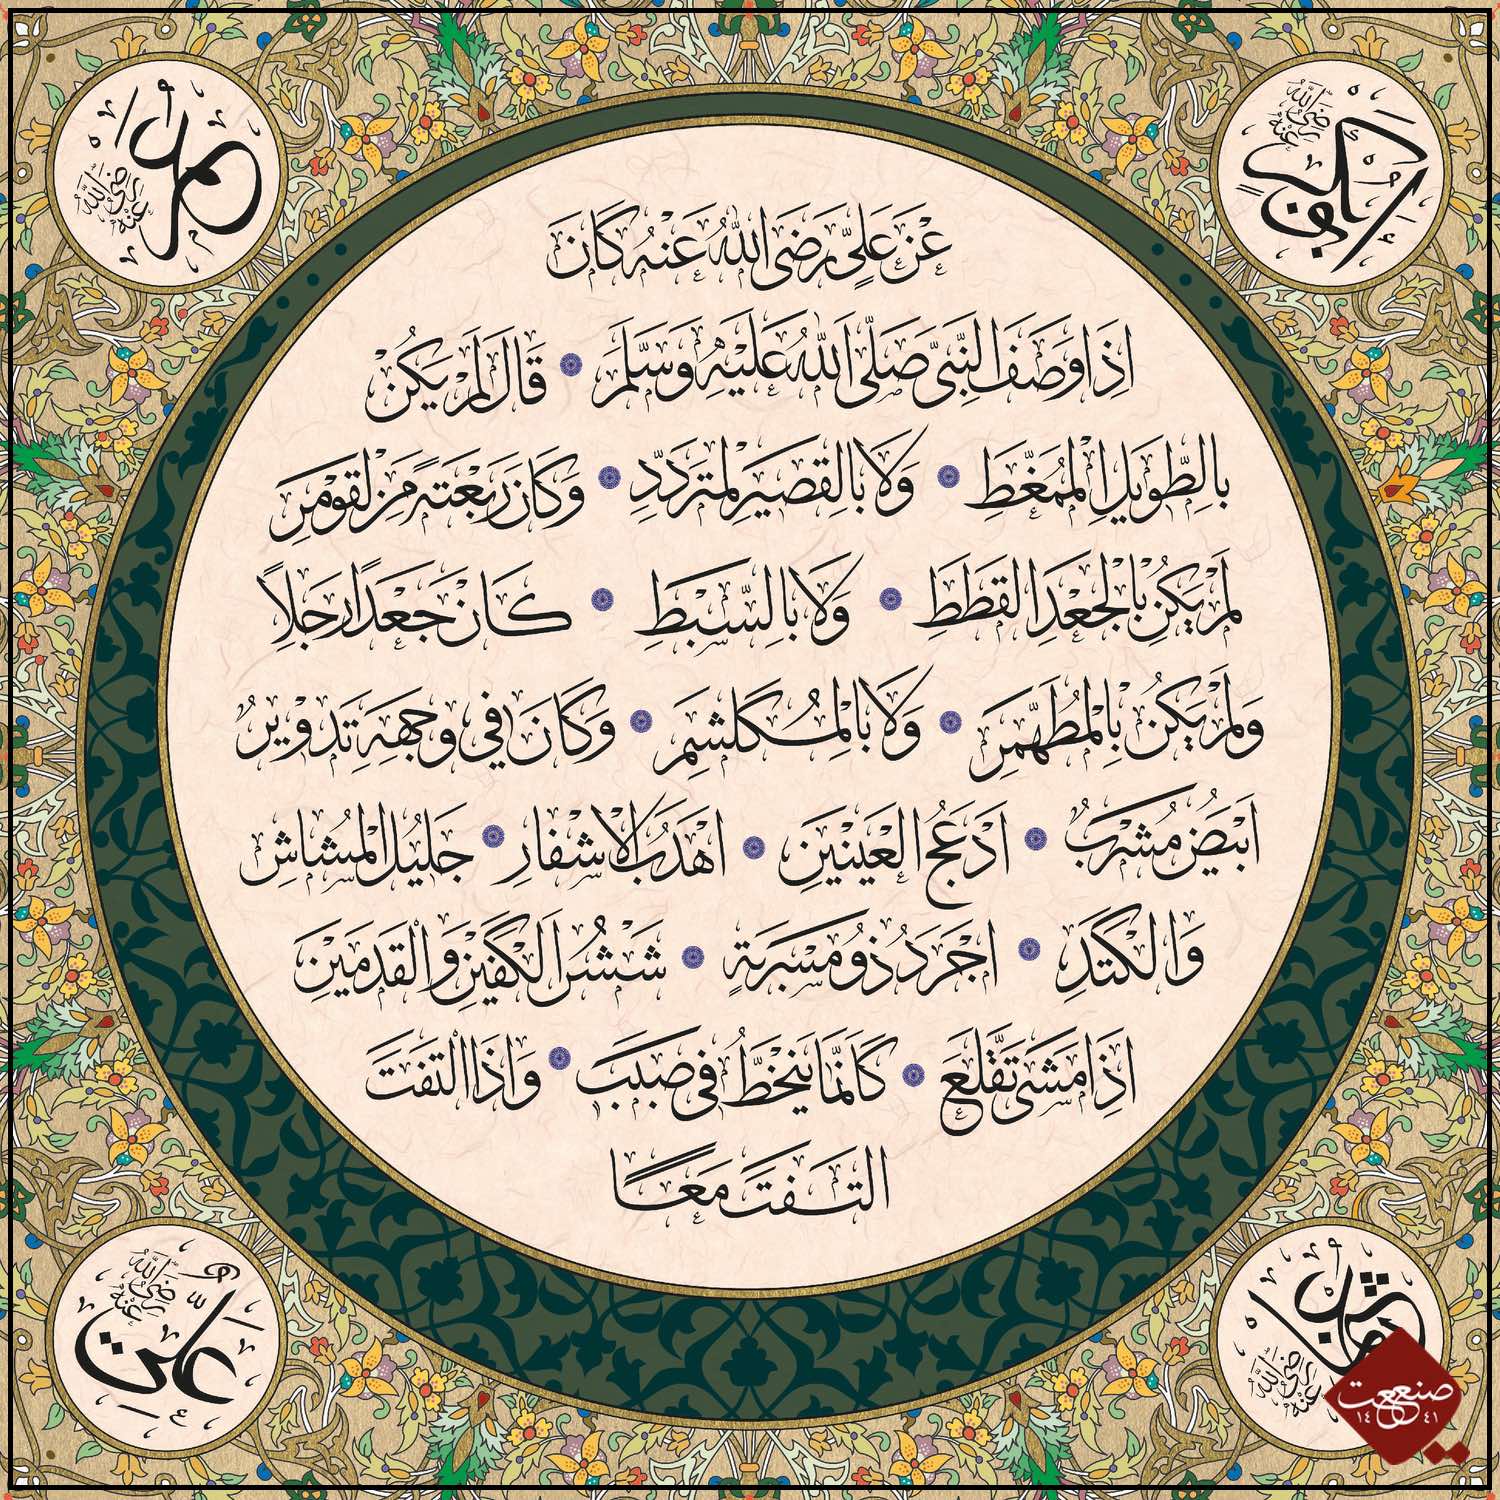 ابوبكر
رضي الله عنه
عمر
رضي الله عنه
عَنْ عَلِيٍّ رَضِيَ اللهُ عَنْهُ كَانَ
اِذَا وَصَفَ النَّبِيَّ صَلَّى اللهُ عَلَيْهِ وَسَلَّمَ قَالَ لَمْ يَكُنْ
بِالطَّوِيلِ الْمُمَغَّطِ وَلَا بِالْقَصِيرِ الْمُتَرَدِّدِ وَكَانَ رَبْعَةً مِنَ الْقَوْمِ
لَمْ يَكُنْ بِالْجَعْدِ الْقَطَطِ وَلَا بِالسَّبَطِ كَانَ جَعْدًا رَجِلًا
وَلَمْ يَكُنْ بِالْمُطَهَّمِ وَلَا بِالْمُكَلْثَمِ وَكَانَ فِي وَجْهِهِ تَدْوِيرٌ
اَبْيَضُ مُشْرَبٌ اَدْعَجُ الْعَيْنَيْنِ اَهْدَبُ الْاَشْفَارِ جَلِيلُ الْمُشَاشِ
وَالْكَتَدِ اَجْرَدُ ذُو مَسْرُبَةٍ شَثْنُ الْكَفَّيْنِ وَالْقَدَمَيْنِ
اِذَا مَشَى تَقَلَّعَ كَاَنَّمَا يَنْحَطُّ فِي صَبَبٍ وَاِذَا الْتَفَتَ
الْتَفَتَ مَعًا
رضي الله عنه
علي
رضي الله عنه
صنعت
١٤ ٤١